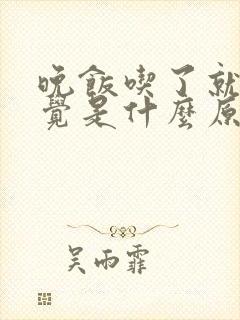 晚飯喫了就
覺是什麼原
吴雨霏